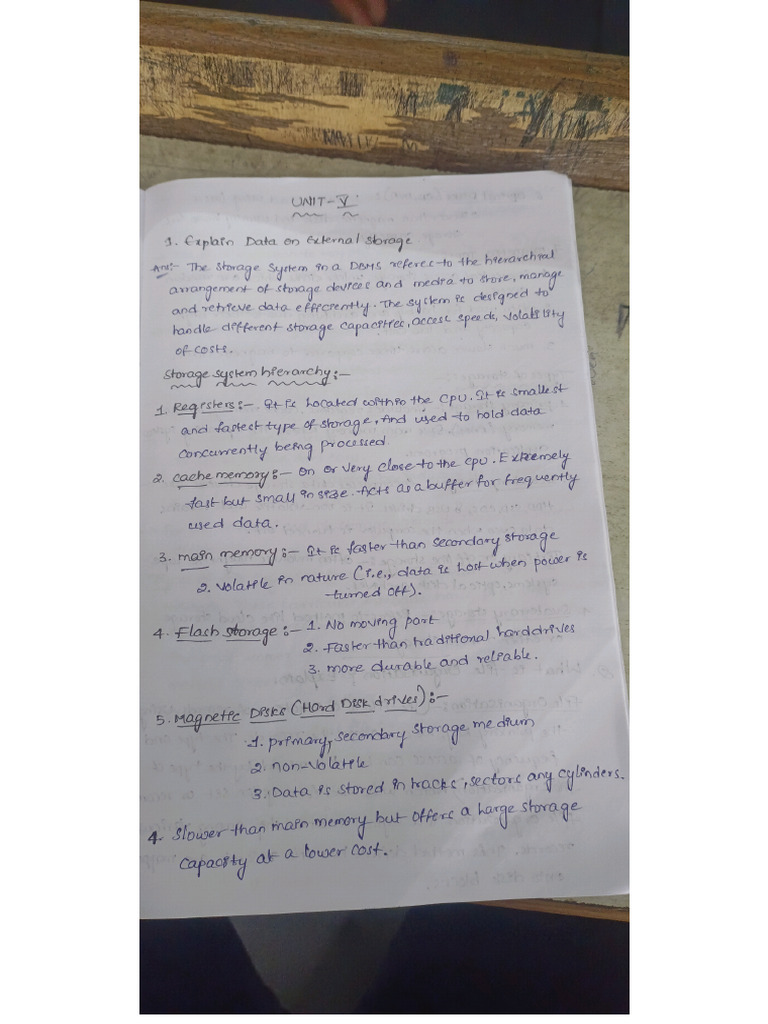 UNIT-V
1. Explain Data on External storage
Ans:- The Storage System in a DBMS referes to the hierarchial
arrangement of storage devices and media to store, manage
and retrieve data efficiently. The system is designed to
handle different storage capacities, access speeds, volability
of costs.
Storage system hierarchy:-
1. Registers:- It is Located within the CPU. It is smallest
and fastest type of storage, And used to hold data
concurrently being processed.
2. cache memory:- On or very close to the CPU. Extremely
fast but small in size. Acts as a buffer for frequently
used data.
3. main memory:- It is faster than secondary storage
2. volatile in nature (i.e., data is lost when power is
turned off).
4. Flash storage:- 1. No moving part
2. Faster than traditional harddrives
3. more durable and reliable.
5. Magnetic Disks (Hard Disk drives):-
1. primary, secondary storage medium
2. non-volatile
3. Data is stored in tracks, sectors any cylinders.
4. slower than main memory but offers a large storage
capacity at a lower cost.